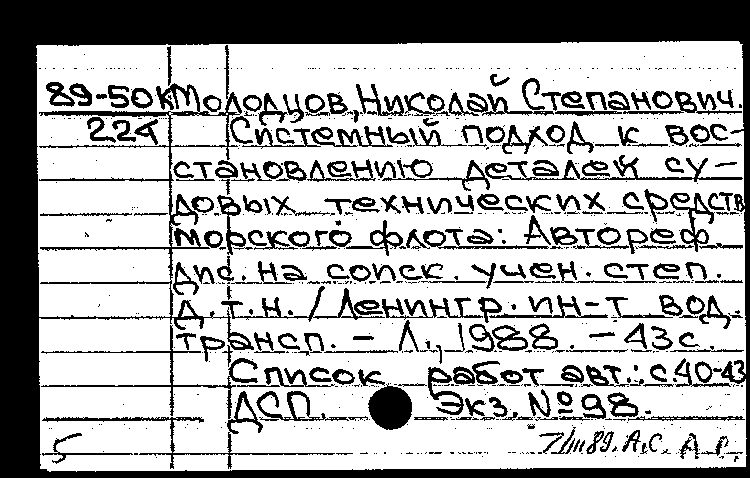 89-50к Молодцов, Николай Степанович.
224 Системный подход к вос-
становлению деталей су-
довых технических средств
морского флота: Автореф.
дис. на соиск. учен. степ.
д.т.н. / Ленингр. ин-т вод.
трансп. - Л., 1988. - 43 с.
Список работ авт.: с. 40-43
ДСП. Экз. №98.
5 7/III 89. А.С. А.Р.